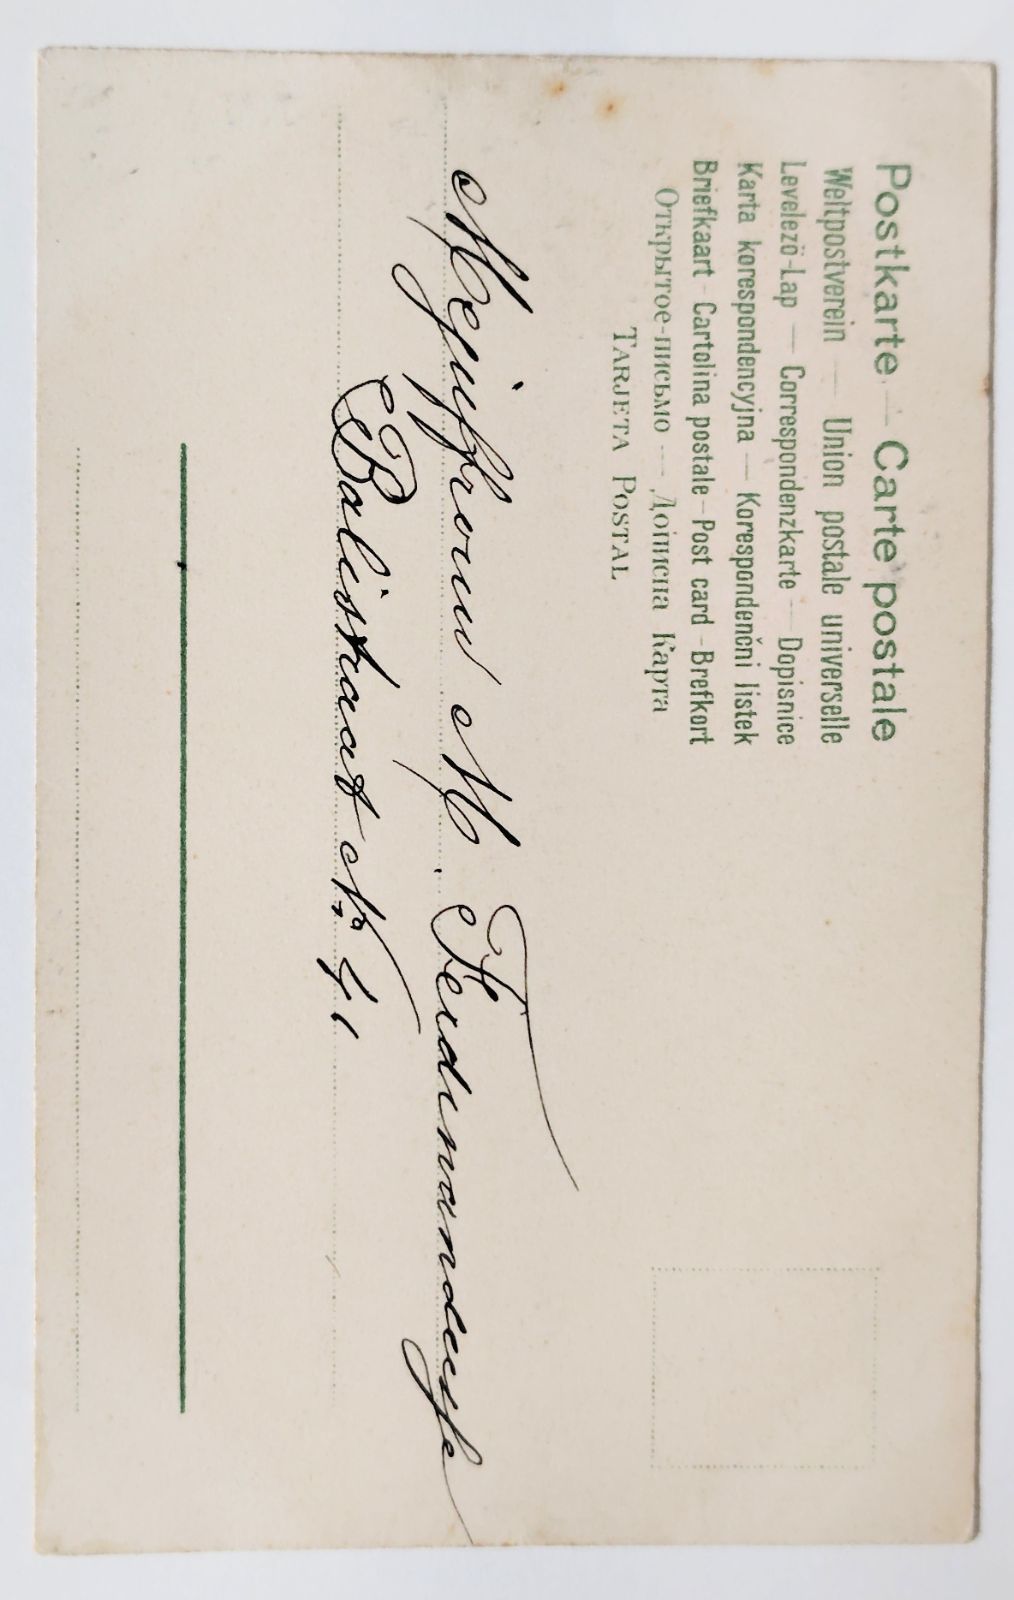 Postkarte — Carte postale
Weltpostverein — Union postale universelle
Levelező-Lap — Correspondenzkarte — Dopisnice
Karta korespondencyjna — Korespondenční listek
Briefkaart - Cartolina postale - Post card - Brefkort
Открытое-письмо — Дописна Карта
TARJETA POSTAL
Mejuffrouw M. Ferdinandusse
Balistraat No. 41